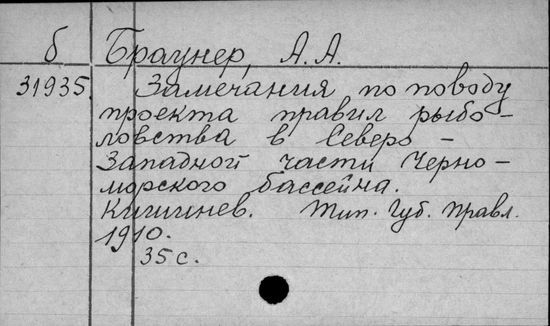 б Браунер, А.А.
31935. Замечания по поводу
проекта правил рыбо-
ловства в Северо-
Западной части Черно-
морского бассейна.
Кишинев. Тип. Губ. Правл.
1910.
35 с.